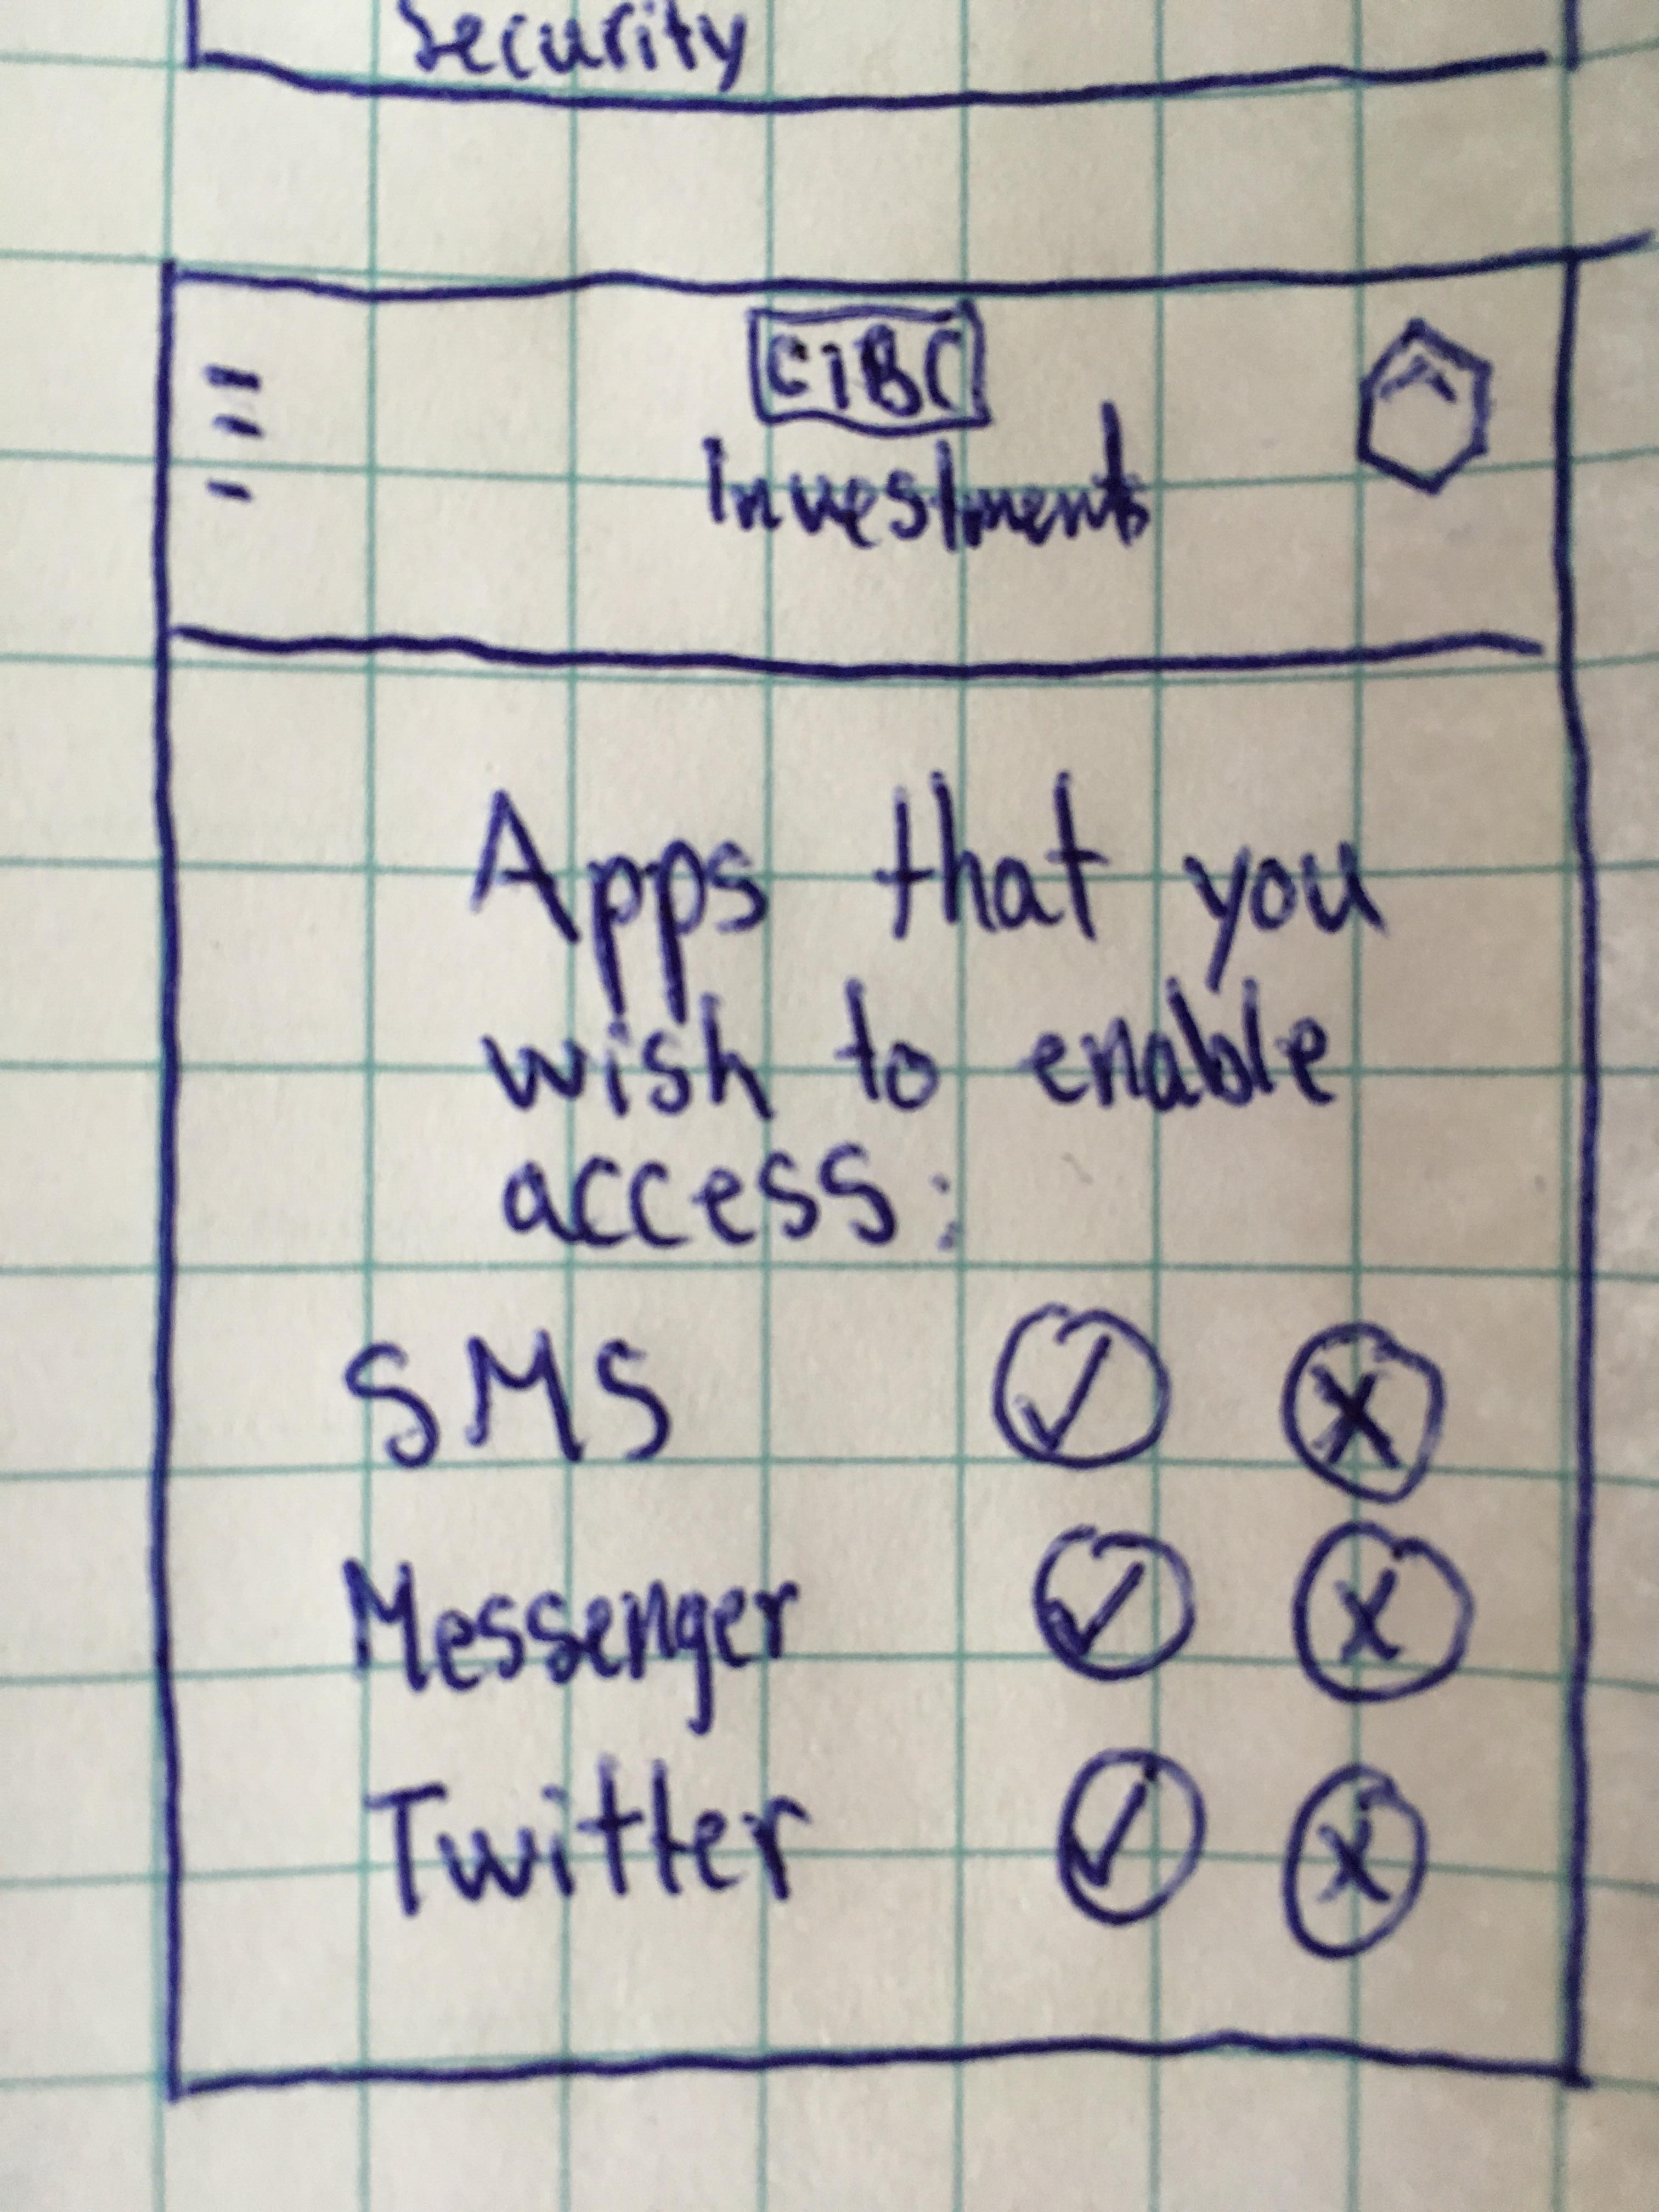 Security
CIBC
Investments
Apps that you
wish to enable
access:
SMS ✓ X
Messenger ✓ X
Twitter ✓ X